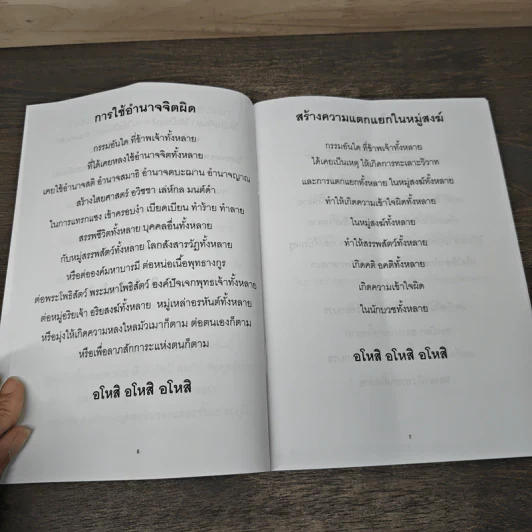 การใช้อำนาจจิตผิด
กรรมอันใด ที่ข้าพเจ้าทั้งหลาย
ที่ได้เคยหลงใช้อำนาจจิตทั้งหลาย
เคยใช้อำนาจสติ อำนาจสมาธิ อำนาจคะฌาน อำนาจญาณ
สร้างไสยศาสตร์ อวิชชา เล่ห์กล มนต์ดำ
ในการแทรกแซง เข้าครอบงำ เบียดเบียน ทำร้าย ทำลาย
สรรพชีวิตทั้งหลาย บุคคลอื่นทั้งหลาย
กับหมู่สรรพสัตว์ทั้งหลาย โลกสังสารวัฏทั้งหลาย
หรือต่อองค์มหาบารมี ต่อหน่อเนื้อพุทธางกูร
ต่อพระโพธิสัตว์ พระมหาโพธิสัตว์ องค์ปัจเจกพุทธเจ้าทั้งหลาย
ต่อหมู่อริยเจ้า อริยสงฆ์ทั้งหลาย หมู่เหล่าอรหันต์ทั้งหลาย
หรือมุ่งให้เกิดความหลงใหลมัวเมาก็ตาม ต่อตนเองก็ตาม
หรือเพื่อลาภสักการะแห่งตนก็ตาม
อโหสิ อโหสิ อโหสิ
6
สร้างความแตกแยกในหมู่สงฆ์
กรรมอันใด ที่ข้าพเจ้าทั้งหลาย
ได้เคยเป็นเหตุ ให้เกิดการทะเลาะวิวาท
และการแตกแยกทั้งหลาย ในหมู่สงฆ์ทั้งหลาย
ทำให้เกิดความเข้าใจผิดทั้งหลาย
ในหมู่สงฆ์ทั้งหลาย
ทำให้สรรพสัตว์ทั้งหลาย
เกิดคติ อคติทั้งหลาย
เกิดความเข้าใจผิด
ในนักบวชทั้งหลาย
อโหสิ อโหสิ อโหสิ
7